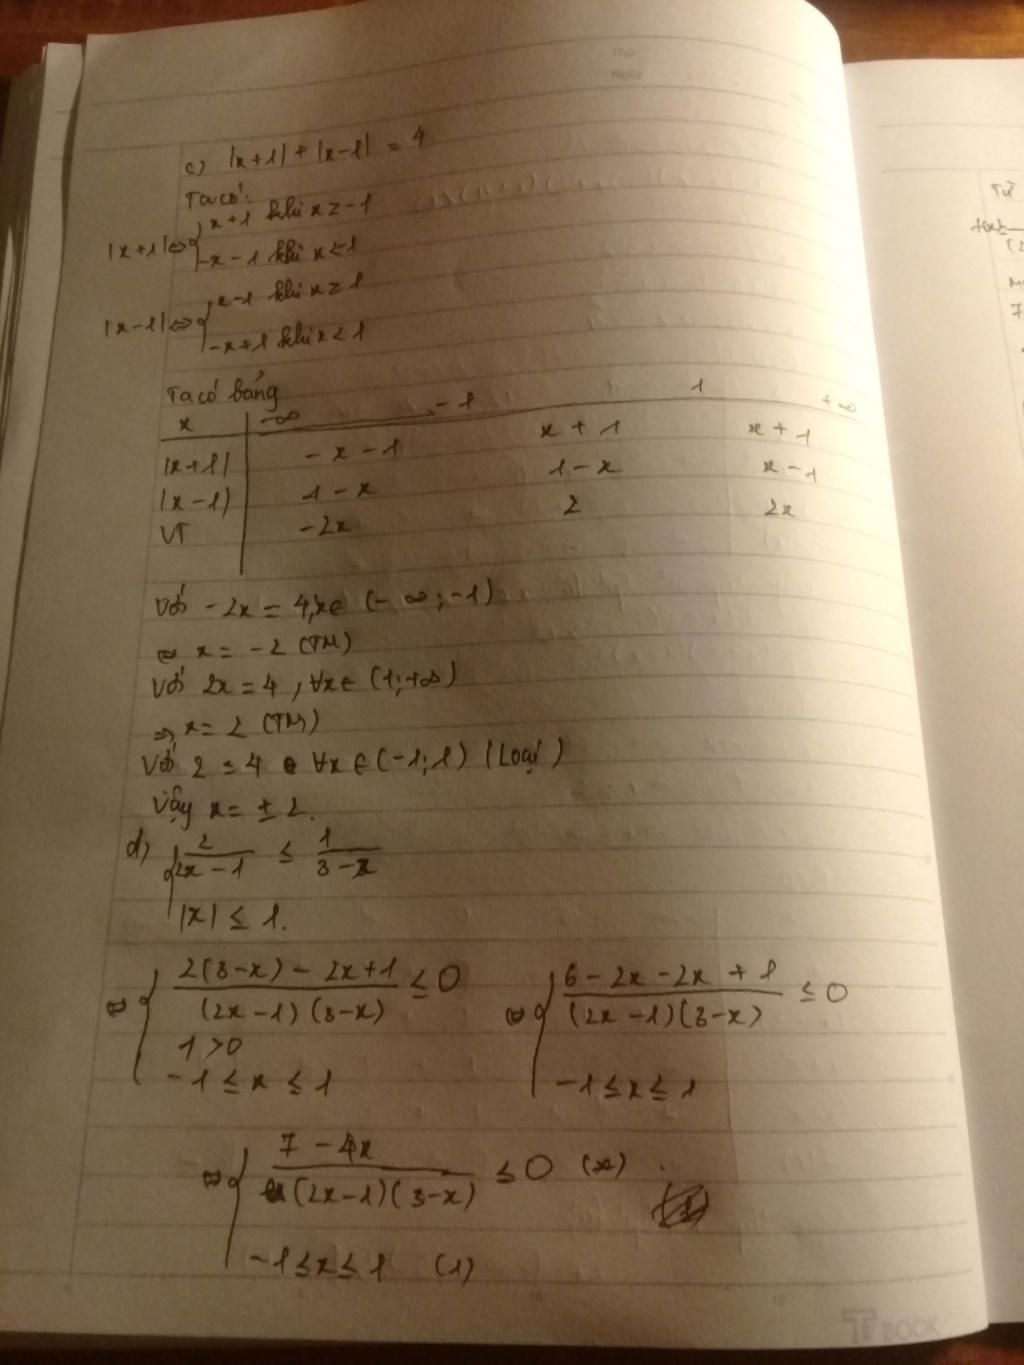 Thứ
Ngày
c) |x+1| + |x-1| = 4
Ta có:
|x+1| ⇔ { x+1 khi x ≥ -1
-x-1 khi x < 1
|x-1| ⇔ { x-1 khi x ≥ 1
-x+1 khi x < 1
Ta có bảng
x -∞ -1 1 +∞
|x+1| -x-1 x+1 x+1
|x-1| 1-x 1-x x-1
VT -2x 2 2x
Với -2x = 4, x ∈ (-∞; -1)
⇔ x = -2 (TM)
Với 2x = 4, ∀x ∈ (1; +∞)
⇒ x = 2 (TM)
Với 2 = 4 ∀x ∈ (-1; 1) (Loại)
Vậy x = ± 2.
d) { 2/(2x-1) ≤ 1/(3-x)
|x| ≤ 1.
⇔ { (2(3-x) - 2x+1)/((2x-1)(3-x)) ≤ 0
1 > 0
-1 ≤ x ≤ 1
⇔ { (6-2x-2x+1)/((2x-1)(3-x)) ≤ 0
-1 ≤ x ≤ 1
⇔ { (7-4x)/((2x-1)(3-x)) ≤ 0 (*)
-1 ≤ x ≤ 1 (1)
BOOK
Từ
7